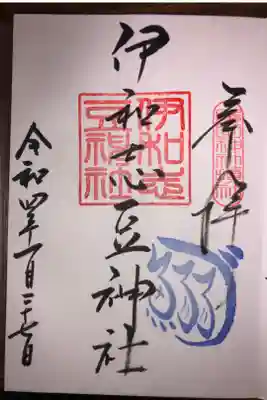 奉拝
伊和志豆神社
伊和志
豆神社
令和四年一月二十七日